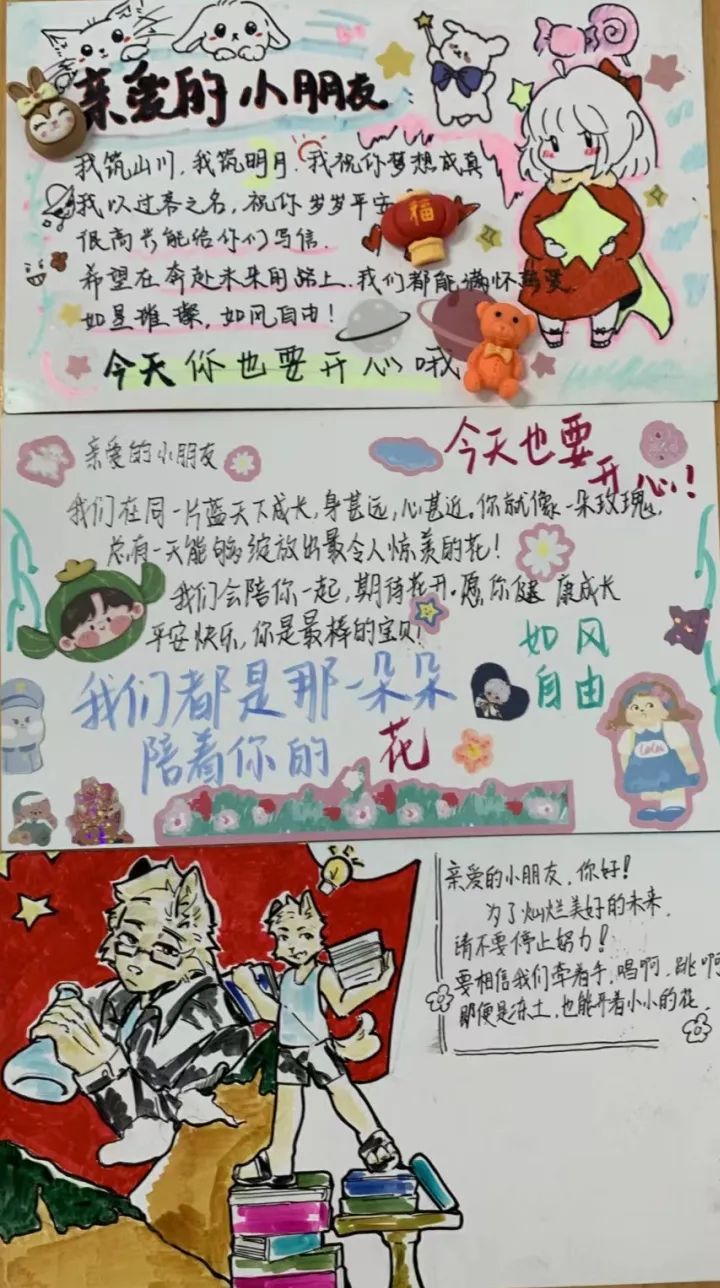 亲爱的小朋友
我筑山川,我筑明月.我祝你梦想成真
我以过客之名,祝你岁岁平安
福
很高兴能给你们写信.
希望在奔赴未来的路上.我们都能满怀热爱
如星璀璨,如风自由!
今天你也要开心哦
亲爱的小朋友
今天也要
开心!
我们在同一片蓝天下成长,身甚远,心甚近。你就像一朵玫瑰,
总有一天能够绽放出最令人惊羡的花!
我们会陪你一起,期待花开。愿你健康成长
平安快乐,你是最棒的宝贝!
如风
自由
我们都是那一朵朵
陪着你的花
亲爱的小朋友,你好!
为了灿烂美好的未来,
请不要停止努力!
要相信我们牵着手,唱啊,跳啊
即便是冻土,也能开着小小的花.